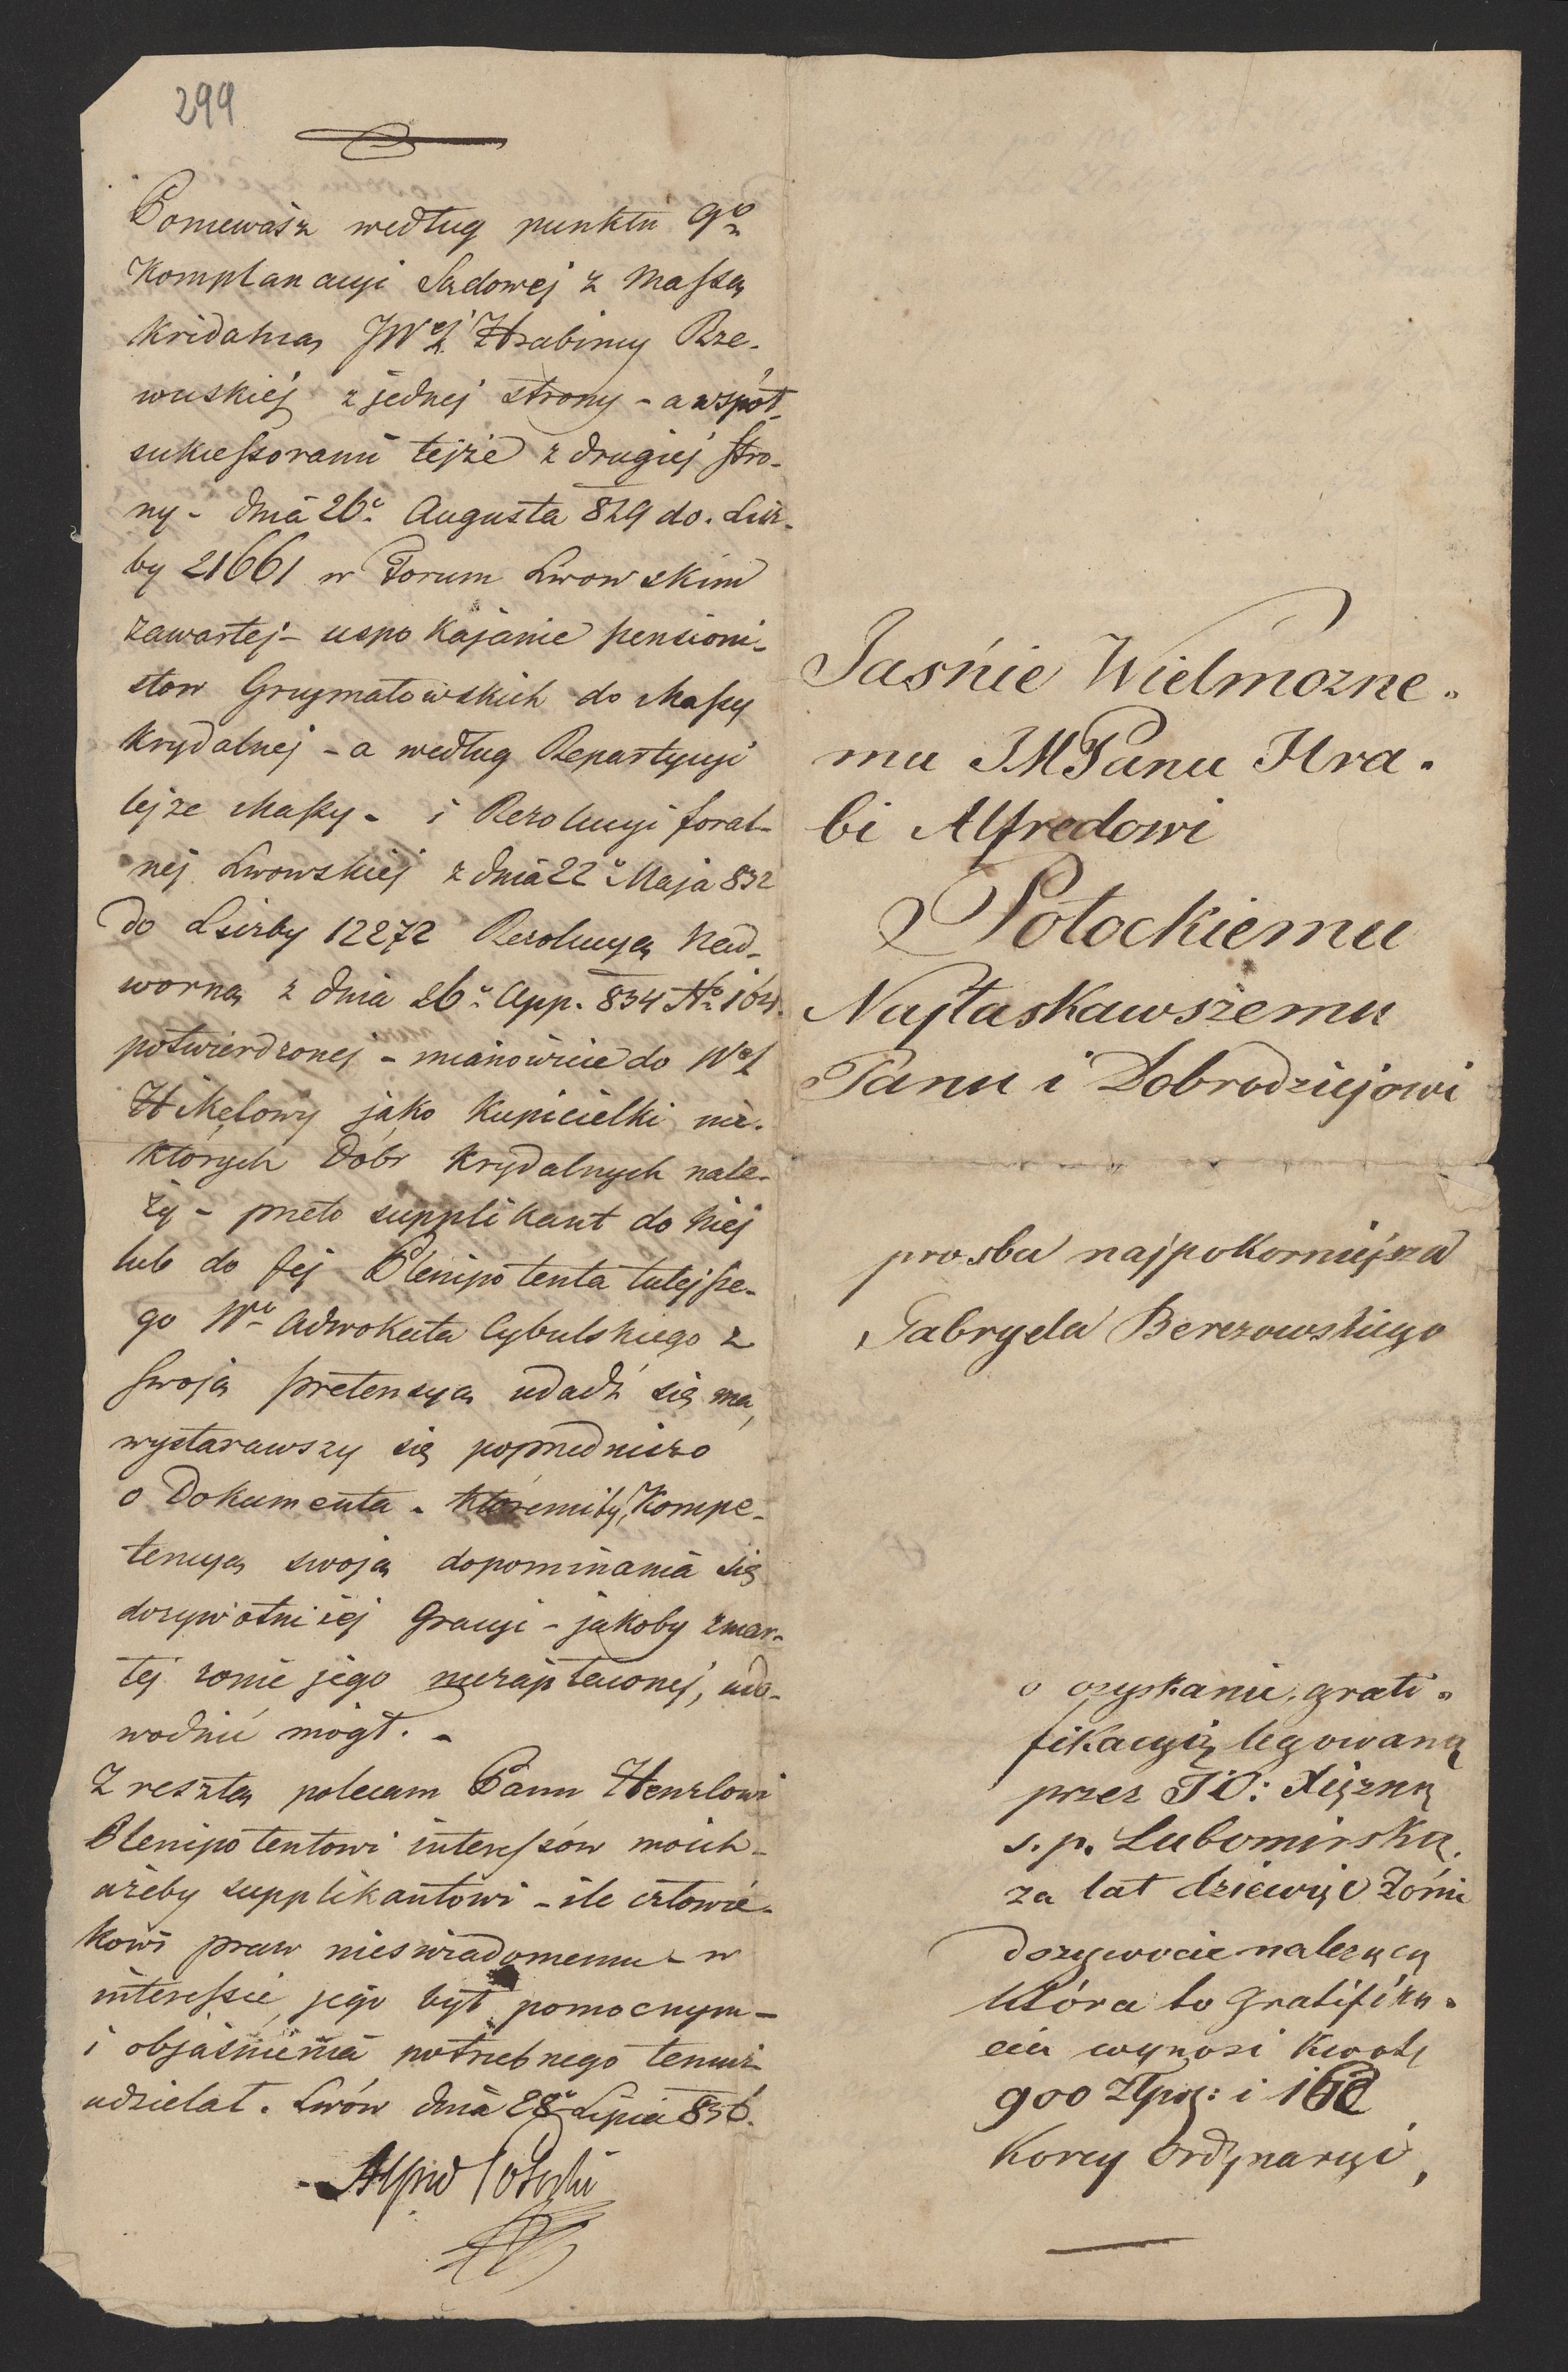 299
Poniewasz według punktu 9º
Komplanacyi Sądowej z Massą
Kridalną JWej Hrabiny Rze-
wuskiej z jednej strony - a współ-
sukcessorami tejże z drugiej stro-
ny - dnia 26º Augusta 829 do Licz-
by 21661 w Forum Lwowskim
zawartej - uspokajanie pensioni-
stow Grzymałowskich do Massy
Krydalnej - a według Repartycyi
tejże Massy - i Rezolucyi foral-
nej Lwowskiej z dnia 22º Maja 832
do Liczby 12272 Rezolucyą Nad-
worną z dnia 26º App. 834 Nº 164
potwierdzonej - mianowicie do Wej
jako Kupicielki nie-
których Dóbr Krydalnych nale-
ży - przeto supplikant do Niej
lub do Jej Plenipotenta tutejsze-
go Wº Adwokata Cybulskiego z
swoją pretensyą udadź się ma,
wystarawszy się poprzedniczo
o Dokumenta - któremiby Kompe-
tencyą swoją dopominania się
dozywotniiej Gracyi - jakoby zmar-
łej zonie jego niezapłaconej, udo-
wodnić mógł. -
Z resztą polecam Panu Henzlowi
Plenipotentowi interessów moich -
ażeby supplikantowi - ile człowie-
kowi praw nieswiadomemu - w
interessie jego był pomocnym -
i objaśnienia potrzebnego temuż
udzielał. Lwów dnia 28º Lipca 836.
Alfred Potocki
Jaśnie Wielmozne-
mu JMPanu Hra-
bi Alfredowi
Potockiemu
Najłaskawszemu
Panu i Dobrodziejowi
prosba najpokorniejsza
Gabryela Berezowskiego
o ozyskanie grati-
fikacyią legowaną
przez JO: Xiężnę
s. p. Lubomirską,
za lat dziewięć Żónie
dozywocie nalezącą
która to gratifika-
cia wynosi kwotę
900 Złpol: i
Korcy Ordynaryi,